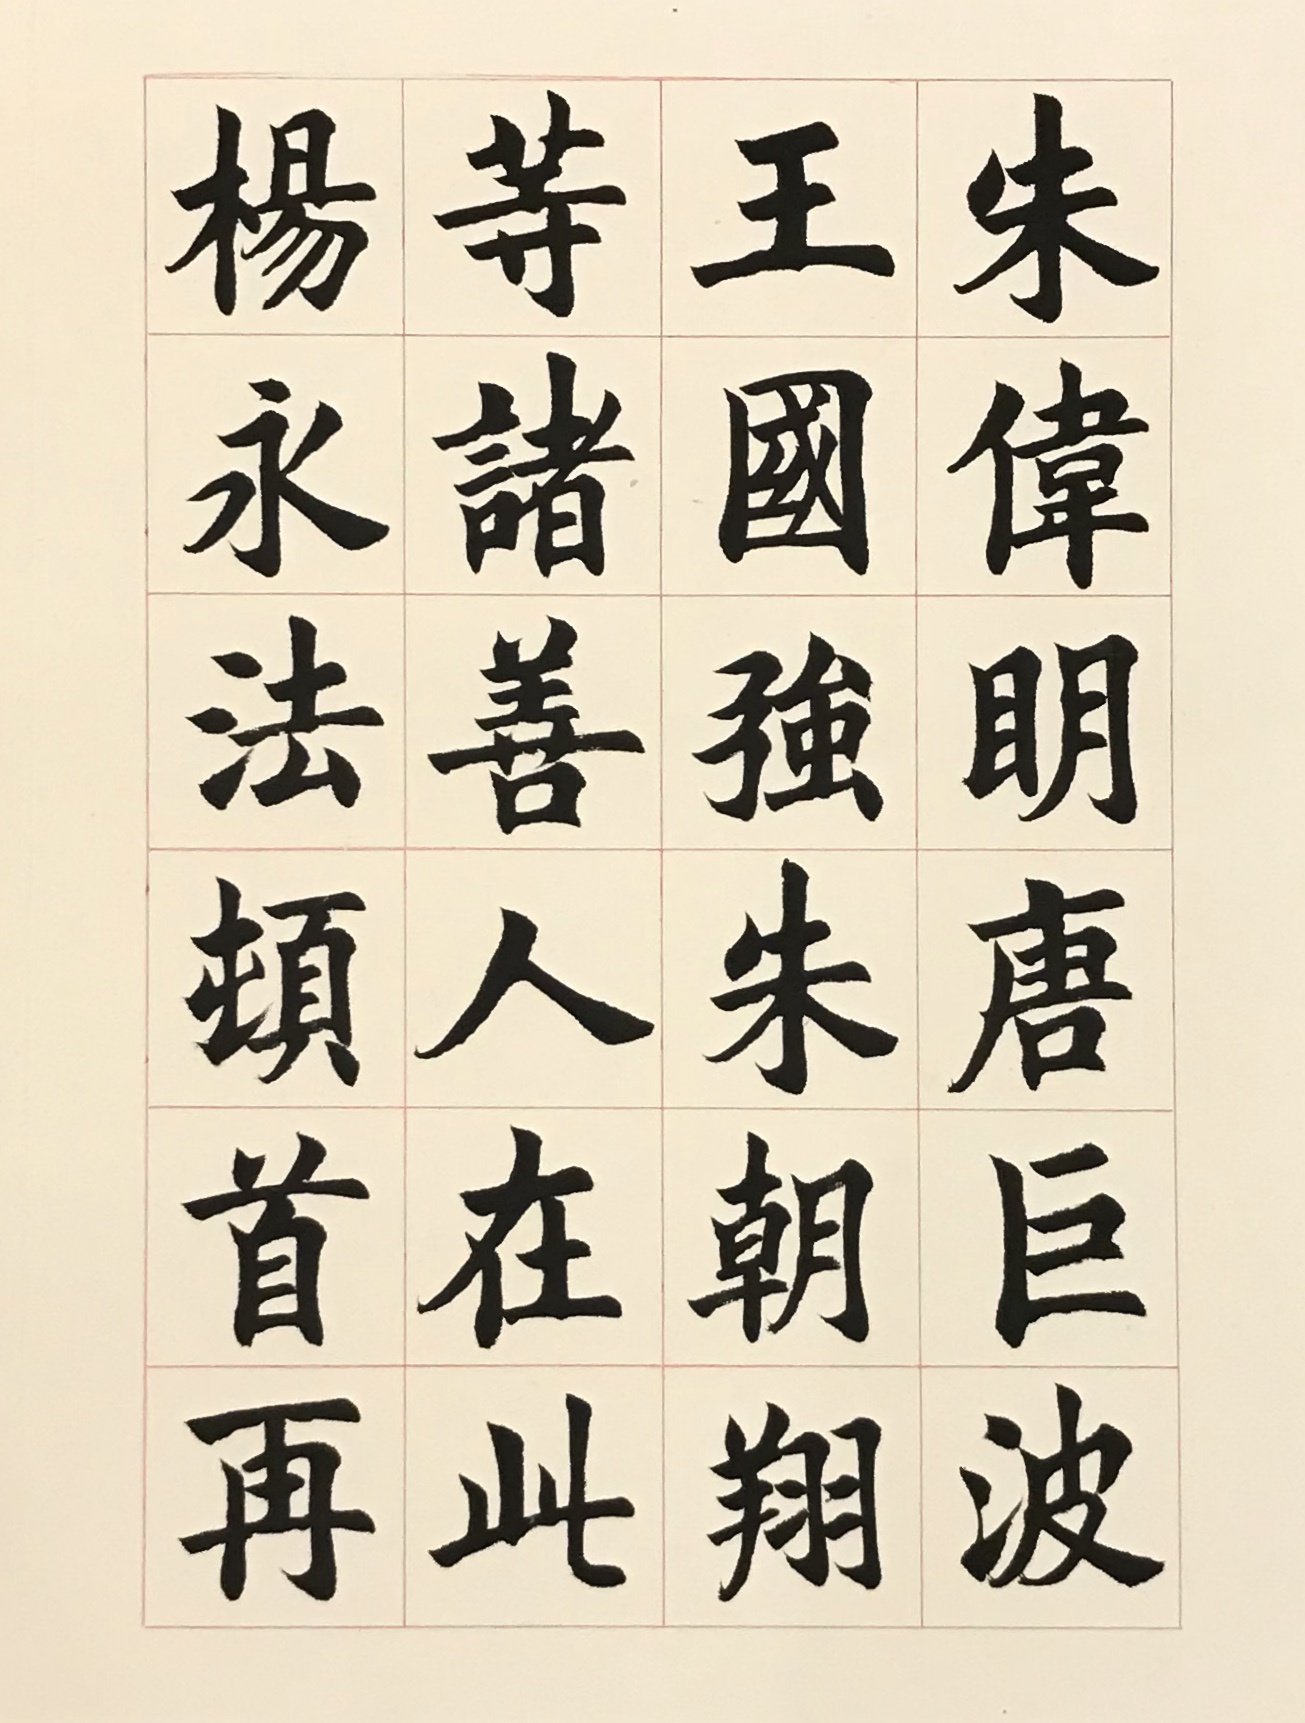 朱偉明唐巨波
王國強朱朝翔
等諸善人在此
楊永法頓首再